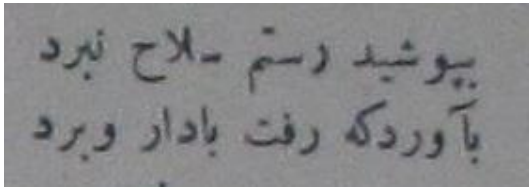 بپوشید رستم سلاح نبرد
بآوردگه رفت بادار وبرد